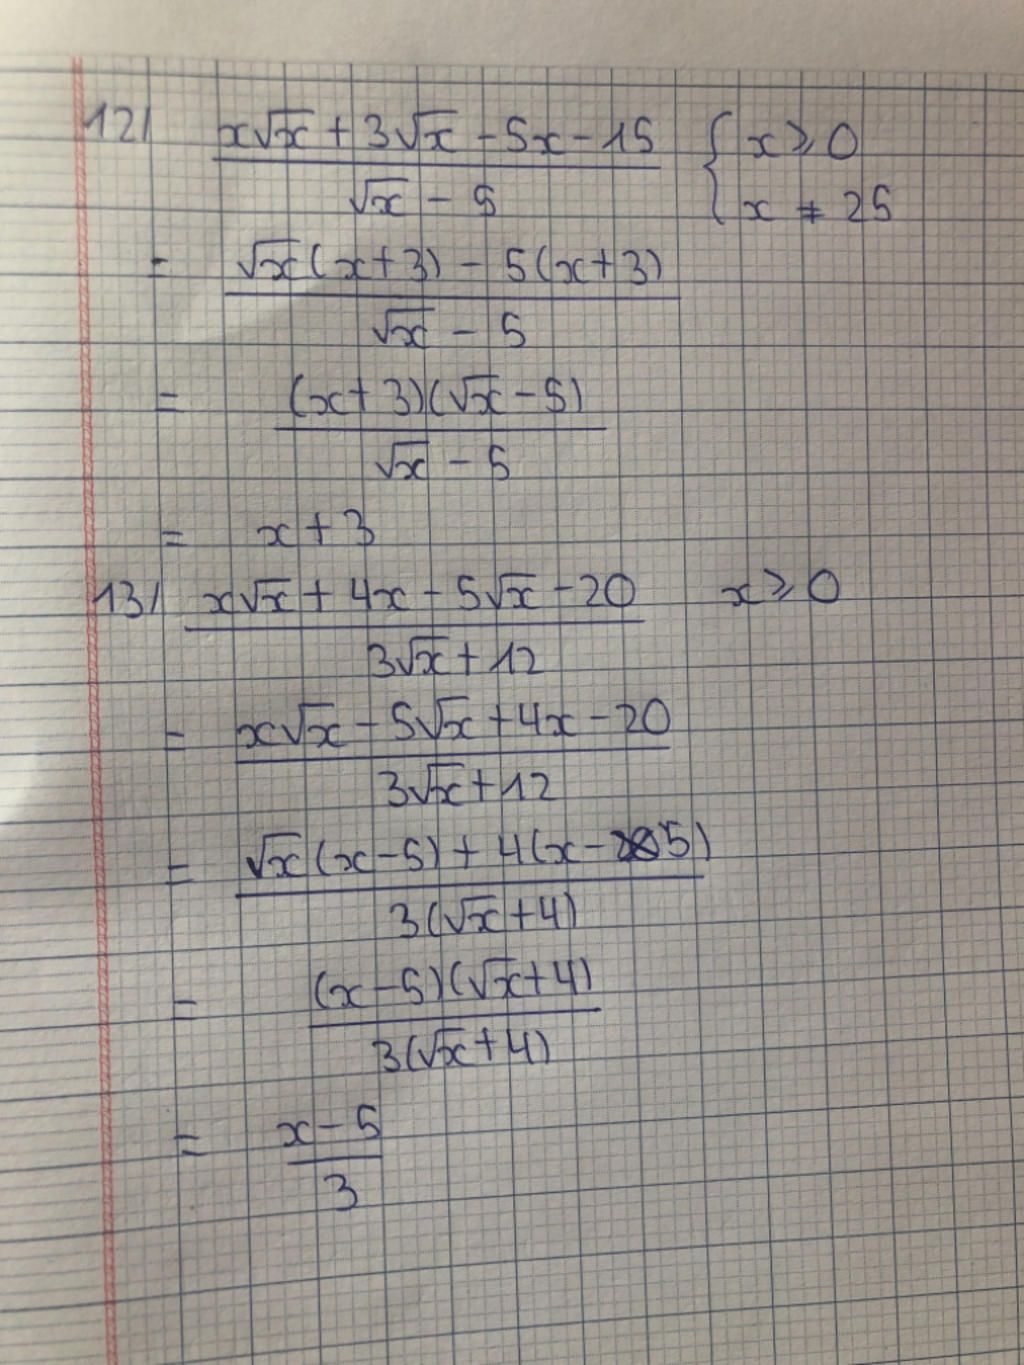 12/ x√x + 3√x - 5x - 15 { x ≥ 0
√x - 5 x ≠ 25
= √x(x+3) - 5(x+3)
√x - 5
= (x+3)(√x-5)
√x - 5
= x + 3
13/ x√x + 4x - 5√x - 20 x ≥ 0
3√x + 12
= x√x - 5√x + 4x - 20
3√x + 12
= √x(x-5) + 4(x-5)
3(√x+4)
= (x-5)(√x+4)
3(√x+4)
= x - 5
3